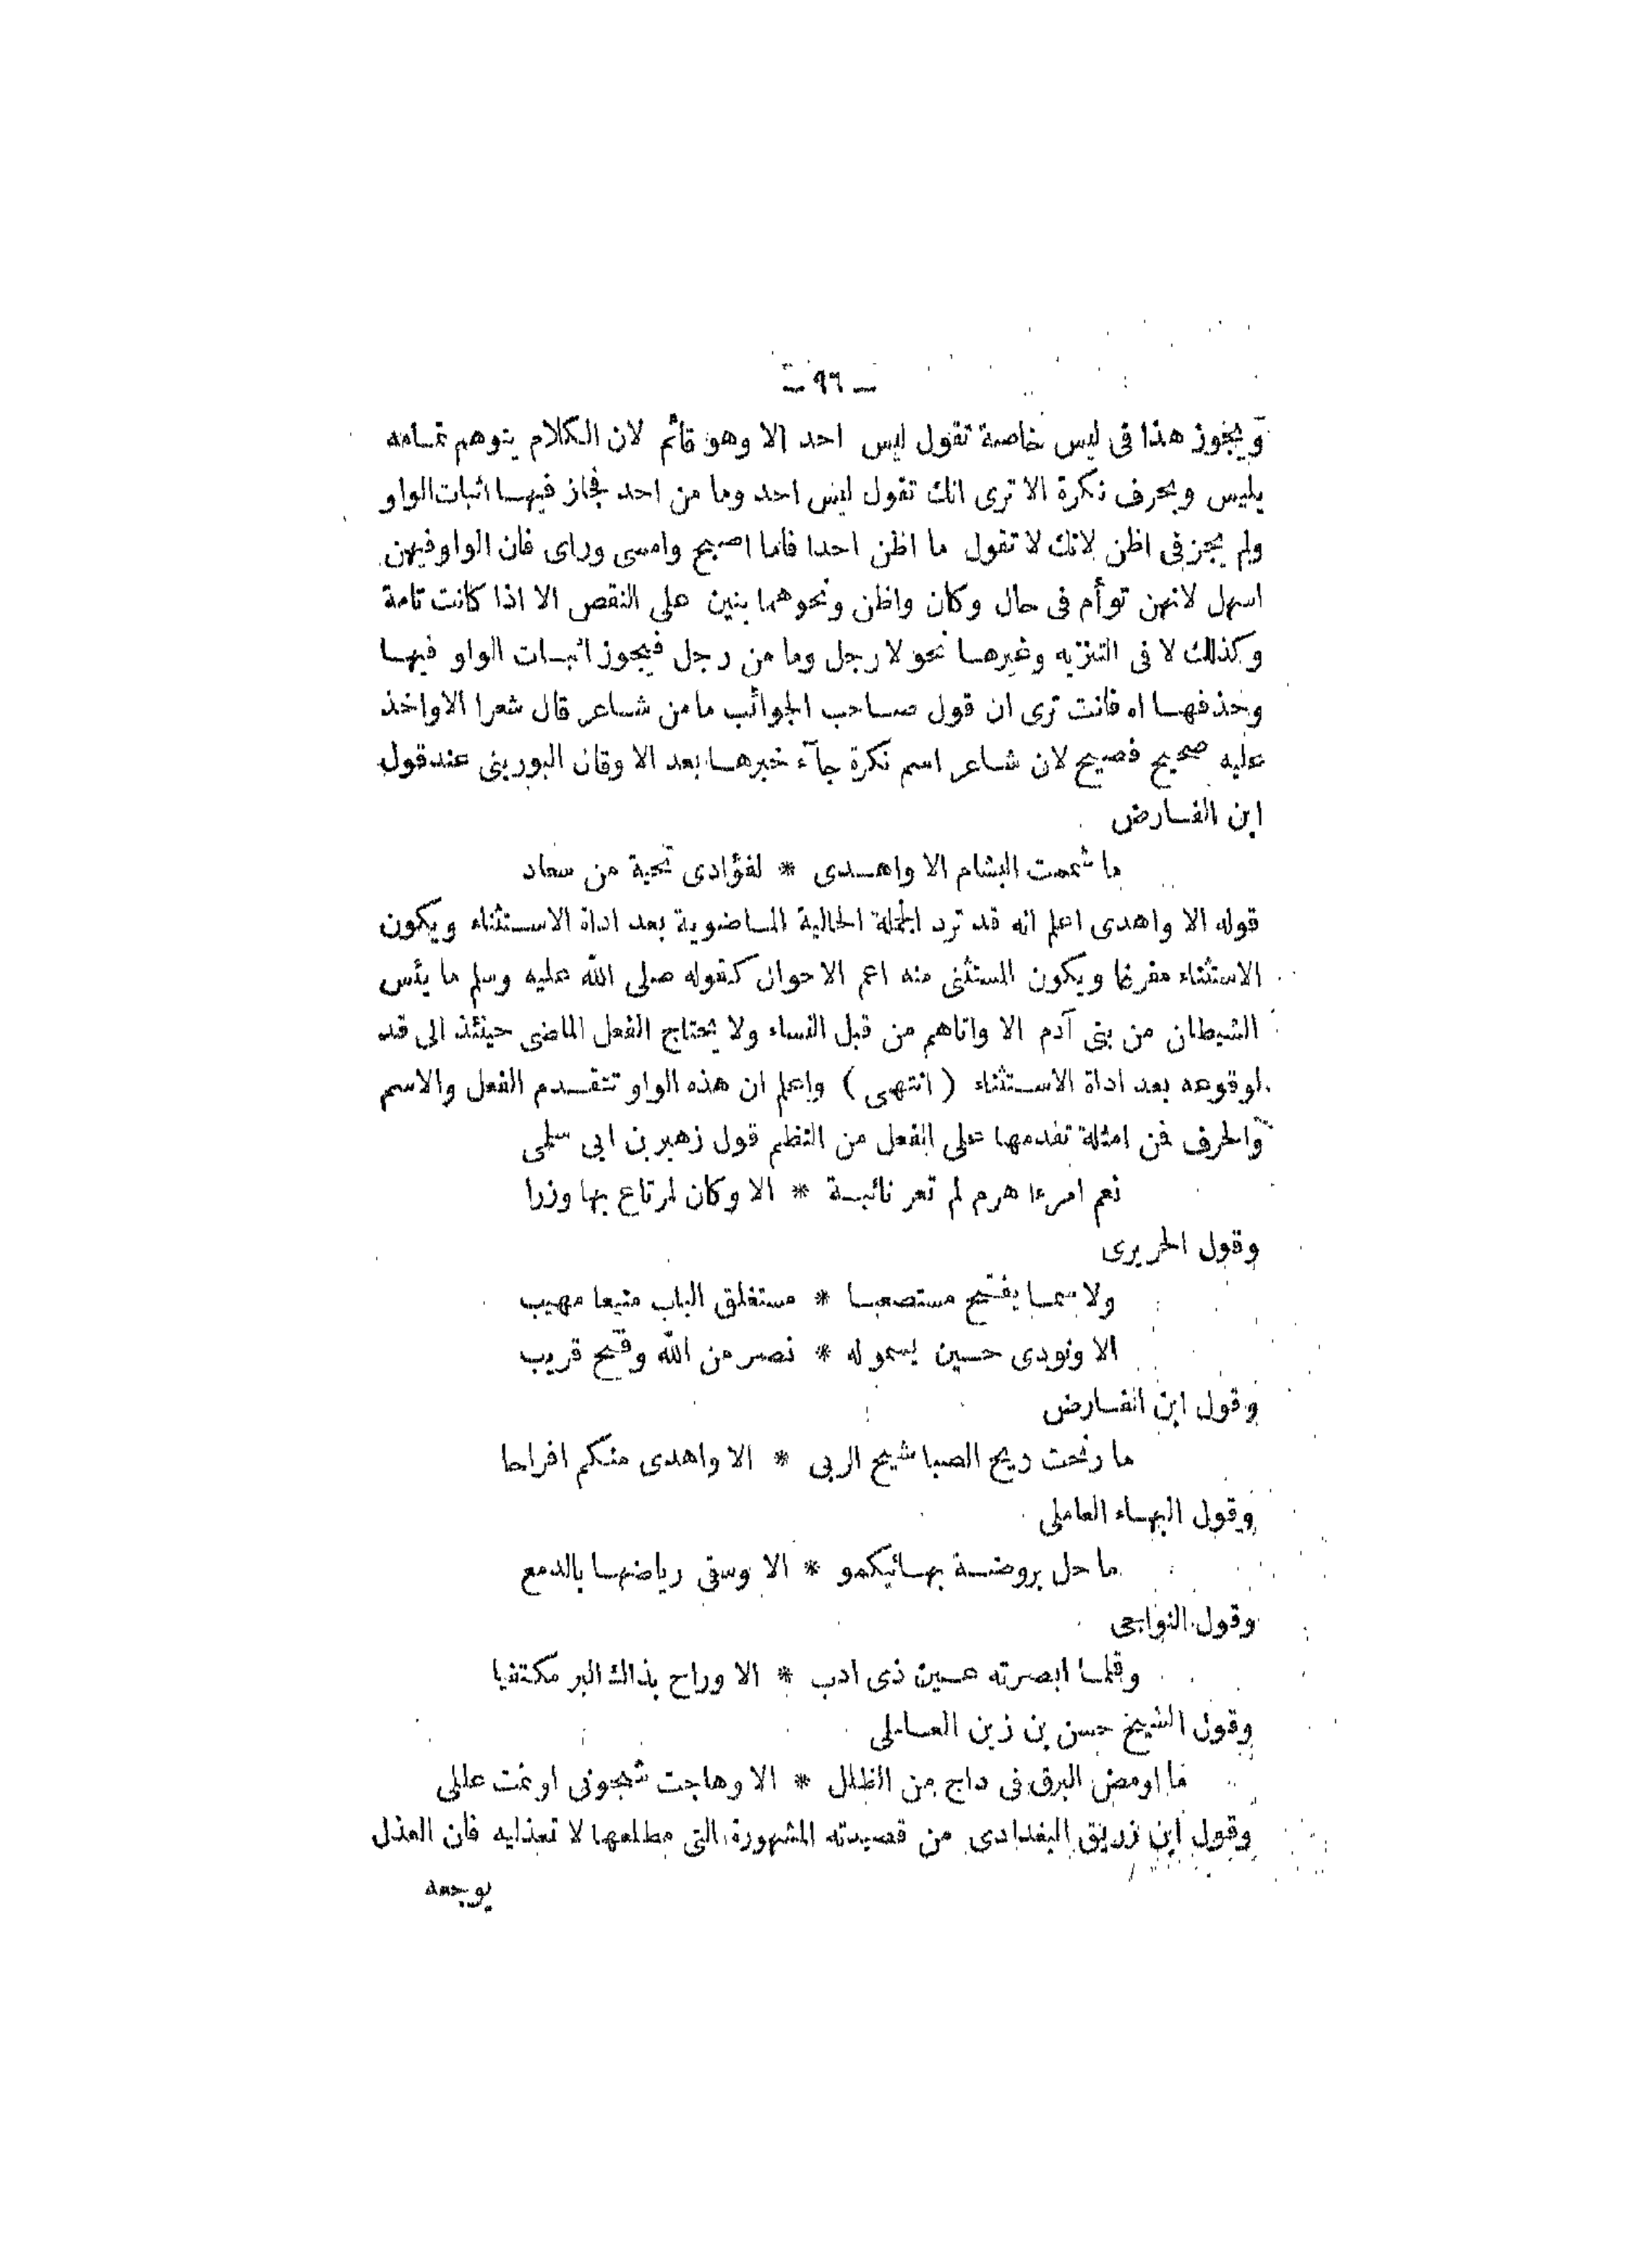 ـ ٩٦ ـ
ويجوز هذا فى ليس خاصة تقول ليس احد الا وهو قائم لان الكلام يتوهم تمامه
بليس وبحرف نكرة الا ترى انك تقول ليس احد وما من احد فجاز فيها اثبات الواو
ولم يجز فى اظن لانك لا تقول ما اظن احدا فاما اصبح وامسى وراى فان الواو فيهن
اسهل لانهن توأم فى حال وكان واظن ونحوهما بنين على النقص الا اذا كانت تامة
وكذلك لا فى التنزيه وغيرها نحو لا رجل وما من رجل فيجوز اثبات الواو فيها
وحذفها اه فانت ترى ان قول صاحب الجوائب ما من شاعر قال شعرا الا واخذ
عليه صحيح فصيح لان شاعر اسم نكرة جآء خبرها بعد الا وقال البورينى عند قول
ابن الفارض
ما شممت البشام الا واهدى * لفؤادى تحية من سعاد
قوله الا واهدى اعلم انه قد ترد الجملة الحالية الماضوية بعد اداة الاستثناء ويكون
الاستثناء مفرغا ويكون المستثنى منه اعم الاحوال كقوله صلى الله عليه وسلم ما يئس
الشيطان من بنى آدم الا واتاهم من قبل النساء ولا يحتاج الفعل الماضى حينئذ الى قد
لوقوعه بعد اداة الاستثناء ( انتهى ) واعلم ان هذه الواو تتقدم الفعل والاسم
والحرف فمن امثلة تقدمها على الفعل من النظم قول زهير بن ابى سلمى
نعم امرءا هرم لم تعر نائبة * الا وكان لمرتاع بها وزرا
وقول الحريرى
ولا سما يفتح مستصعبا * مستغلق الباب منيعا مهيب
الا ونودى حسين يسمو له * نصر من الله وفتح قريب
وقول ابن الفارض
ما رنحت ريح الصبا شيح الربى * الا واهدى منكم افراحا
وقول البهاء العاملى
ما حل بروضة بهائيكمو * الا وسقى رياضها بالدمع
وقول النواجى
وقلما ابصرته عين ذى ادب * الا وراح بذاك البر مكتفيا
وقول الشيخ حسن بن زين العاملى
فما اومض البرق فى داج من الظلل * الا وهاجت شجونى او نمت عللى
وقول ابن زريق البغدادى من قصيدته المشهورة التى مطلعها لا تعذليه فان العذل
يوجعه